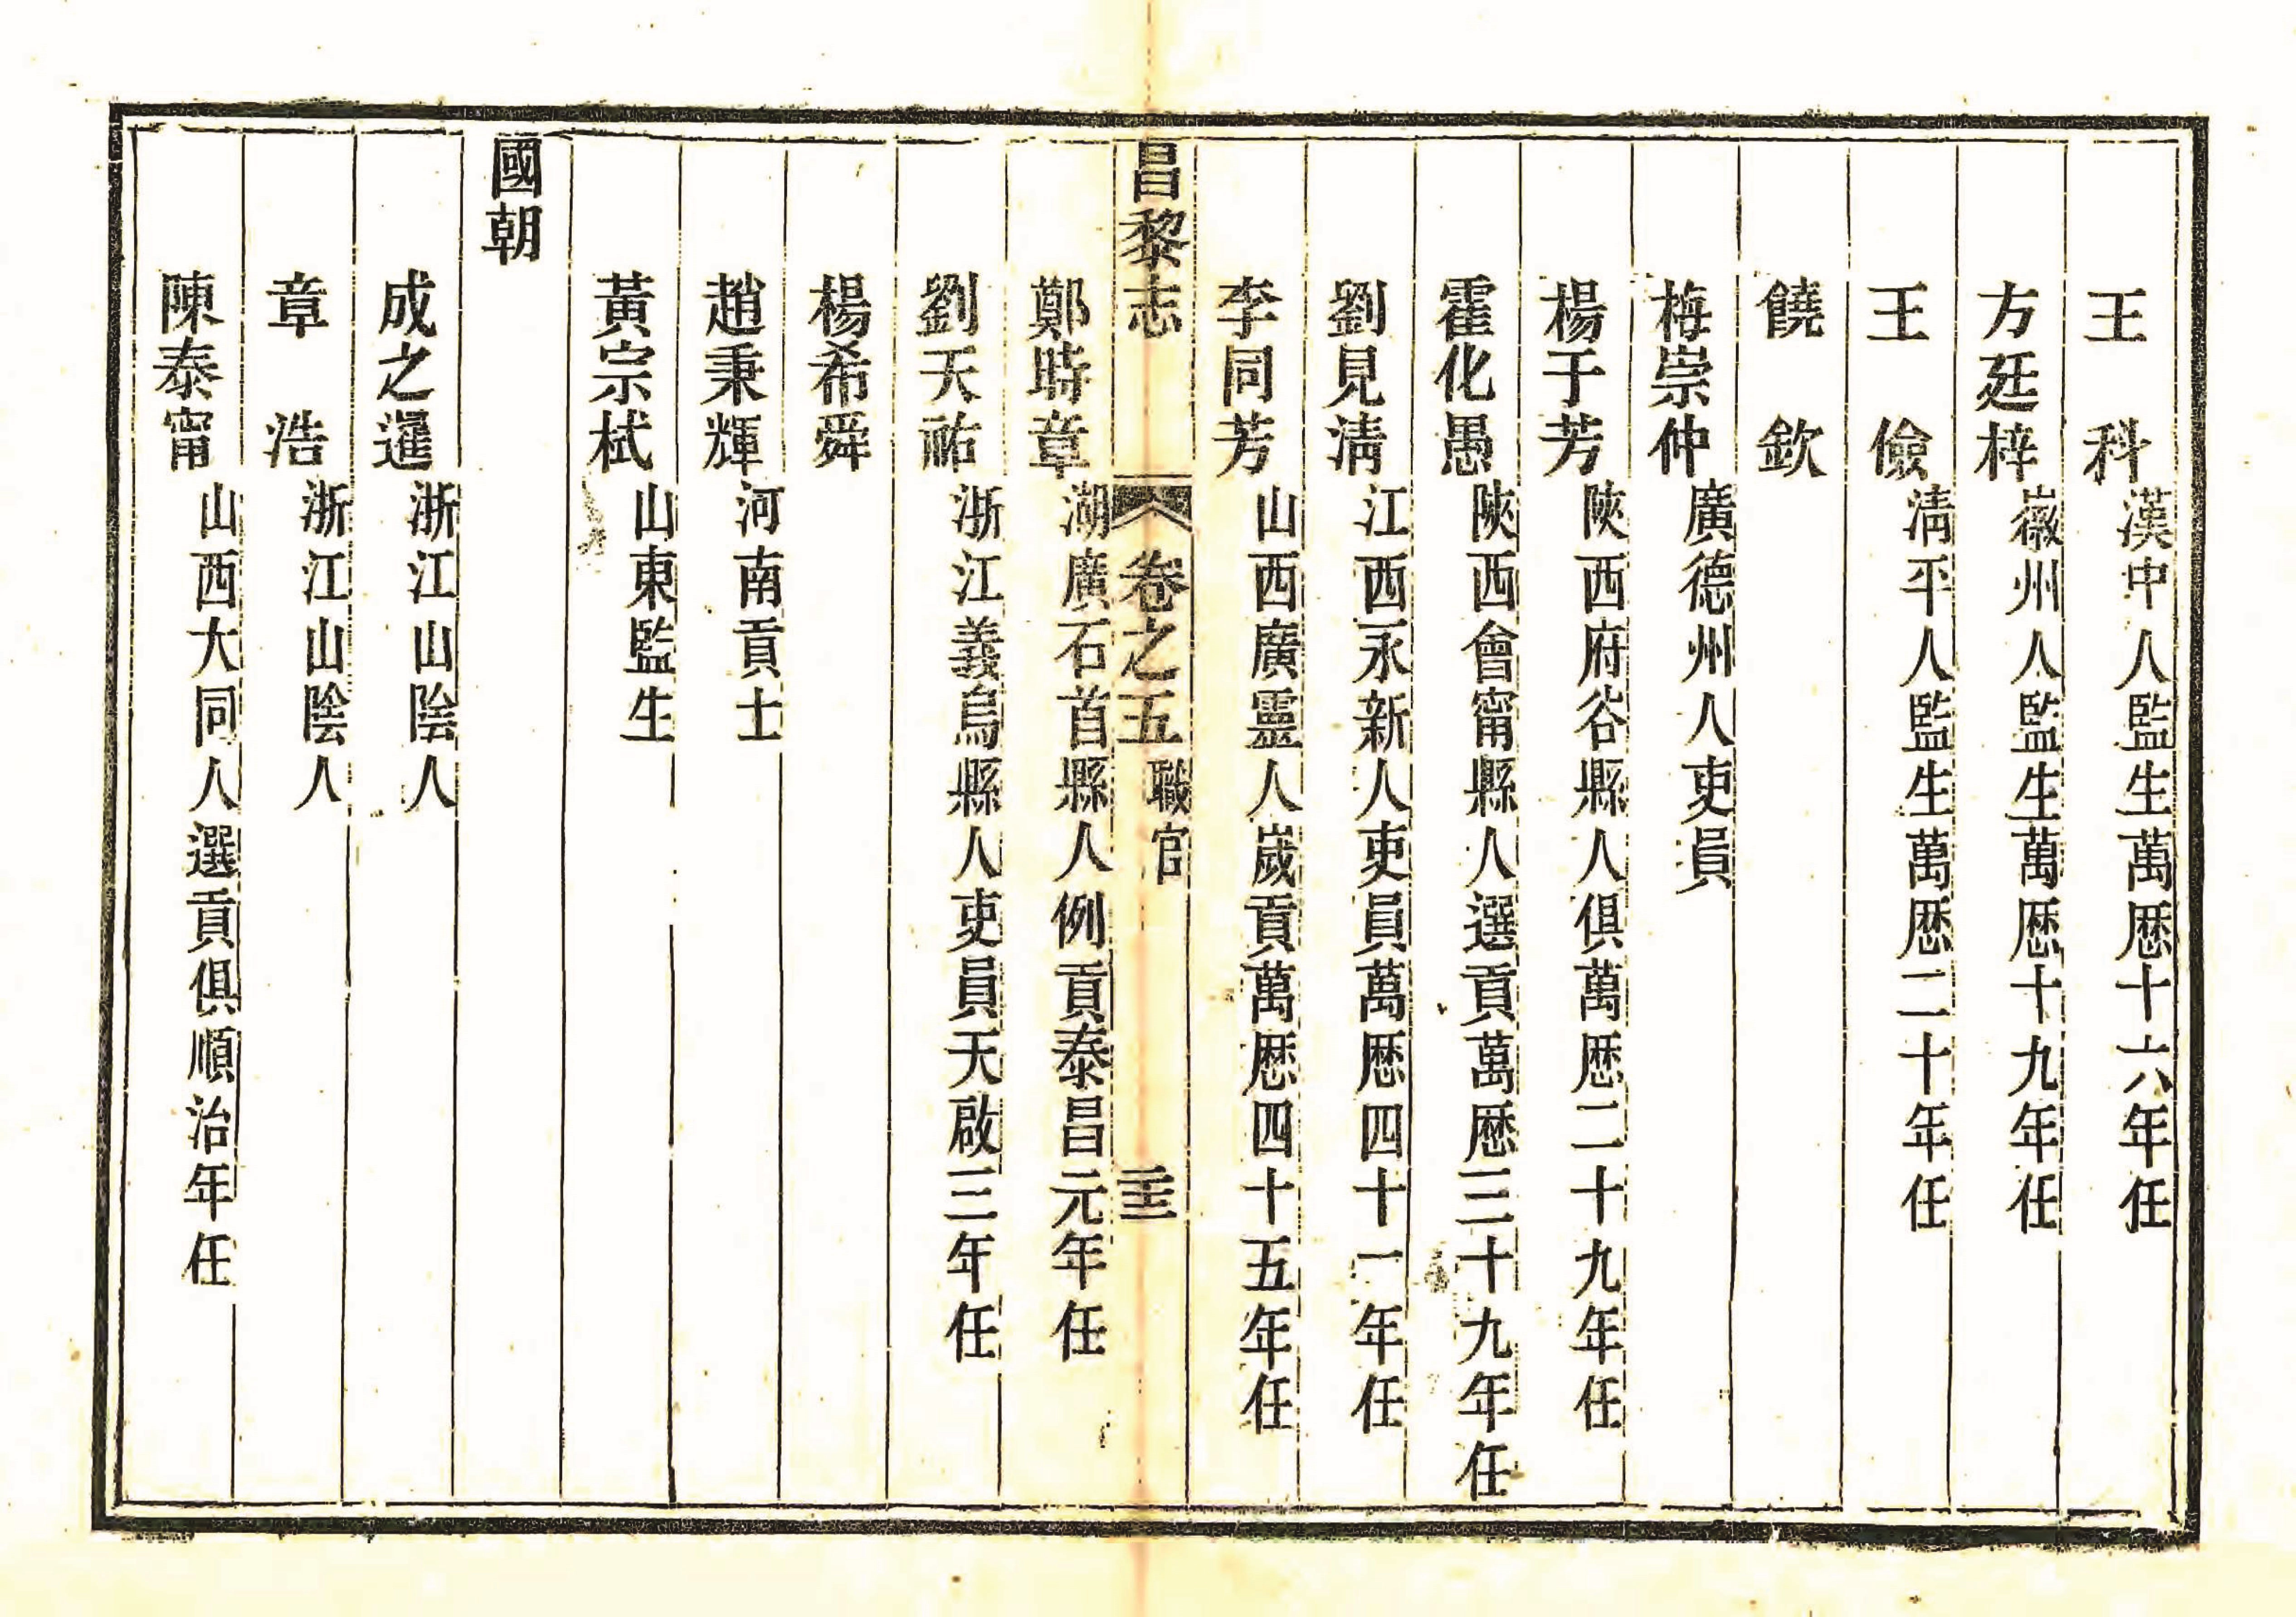 王　科漢中人監生萬厯十六年任
方廷梓徽州人監生萬厯十九年任
王　儉淸平人監生萬厯二十年任
饒　欽
梅崇仲廣德州人吏員
楊于芳陜西府谷縣人俱萬厯二十九年任
霍化愚陜西會甯縣人選貢萬厯三十九年任
劉見淸江西永新人吏員萬厯四十一年任
李同芳山西廣靈人歲貢萬厯四十五年任
昌黎志　卷之五職官　
鄭時章湖廣石首縣人例貢泰昌元年任
劉天祐浙江義烏縣人吏員天啟三年任
楊希舜
趙秉輝河南貢士
黃宗栻山東監生
國朝
成之暹浙江山陰人
章　浩浙江山陰人
陳泰甯山西大同人選貢俱順治年任